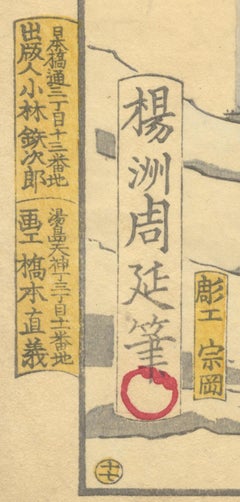 楊洲周延筆
彫工 宗岡
日本橋通三丁目十三番地
出版人小林鉄次郎
湯島天神丁三丁目十一番地
画工 橋本直義
十七